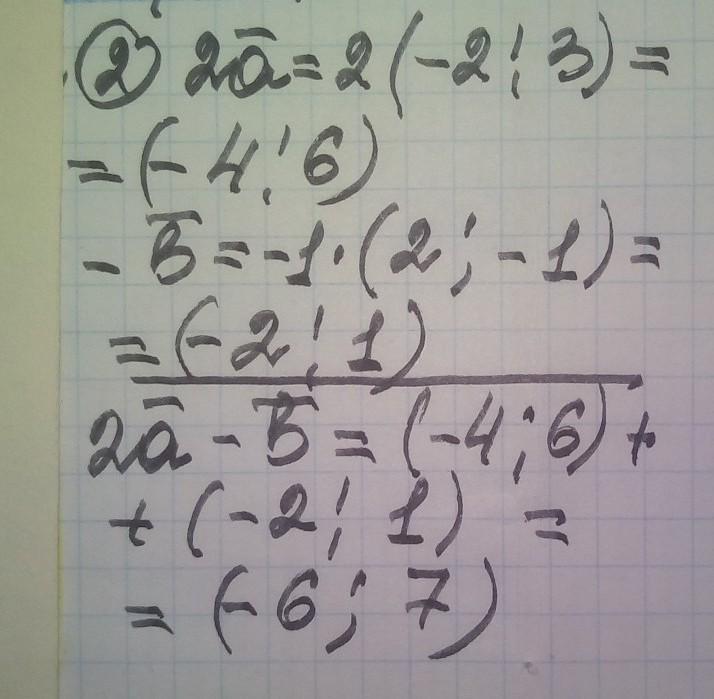 ② 2a̅ = 2 (-2; 3) =
= (-4; 6)
- b̅ = -1 · (2; -1) =
= (-2; 1)
2a̅ - b̅ = (-4; 6) +
+ (-2; 1) =
= (-6; 7)